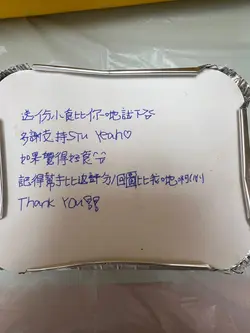 送份小食比你哋試下先
多謝支持Stu Yeah♡
如果覺得好食^^
記得幫手比返評分/回圖比我哋呀
Thank You